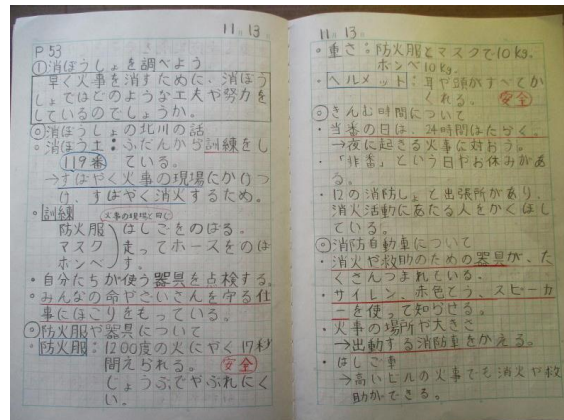 11. 13.
P53
①消ぼうしょを調べよう
早く火事を消すために、消ぼう
しょではどのような工夫や努力を
しているのでしょうか。
◎消ぼうしょの北川の話
・消ぼう士：ふだんから訓練をし
119番 ている。
→すばやく火事の現場にかけつ
け、すばやく消火するため。
・訓練 火事の現場と同じ
防火服 はしごをのばる。
マスク 走ってホースをのば
ボンベ す。
・自分たちが使う器具を点検する。
・みんなの命やざいさんを守る仕
事にほこりをもっている。
◎防火服や器具について
・防火服：1200度の火にやく17秒
間えられる。 安全
じょうぶでやぶれにく
い。
11. 13.
・重さ：防火服とマスクで10kg.
ボンベ10kg.
・ヘルメット：耳や頭がすべてか
くれる。 安全
◎きんむ時間について
・当番の日は、24時間はたらく。
→夜に起きる火事に対おう。
・「非番」という日やお休みがあ
る。
・12の消防しょと出張所があり、
消火活動にあたる人をかくほし
ている。
◎消防自動車について
・消火や救助のための器具が、た
くさんつまれている。
・サイレン、赤色とう、スピーカ
ーを使って知らせる。
・火事の場所や大きさ
→出動する消防車をかえる。
・はしご車
→高いビルの火事でも消火や救
助ができる。